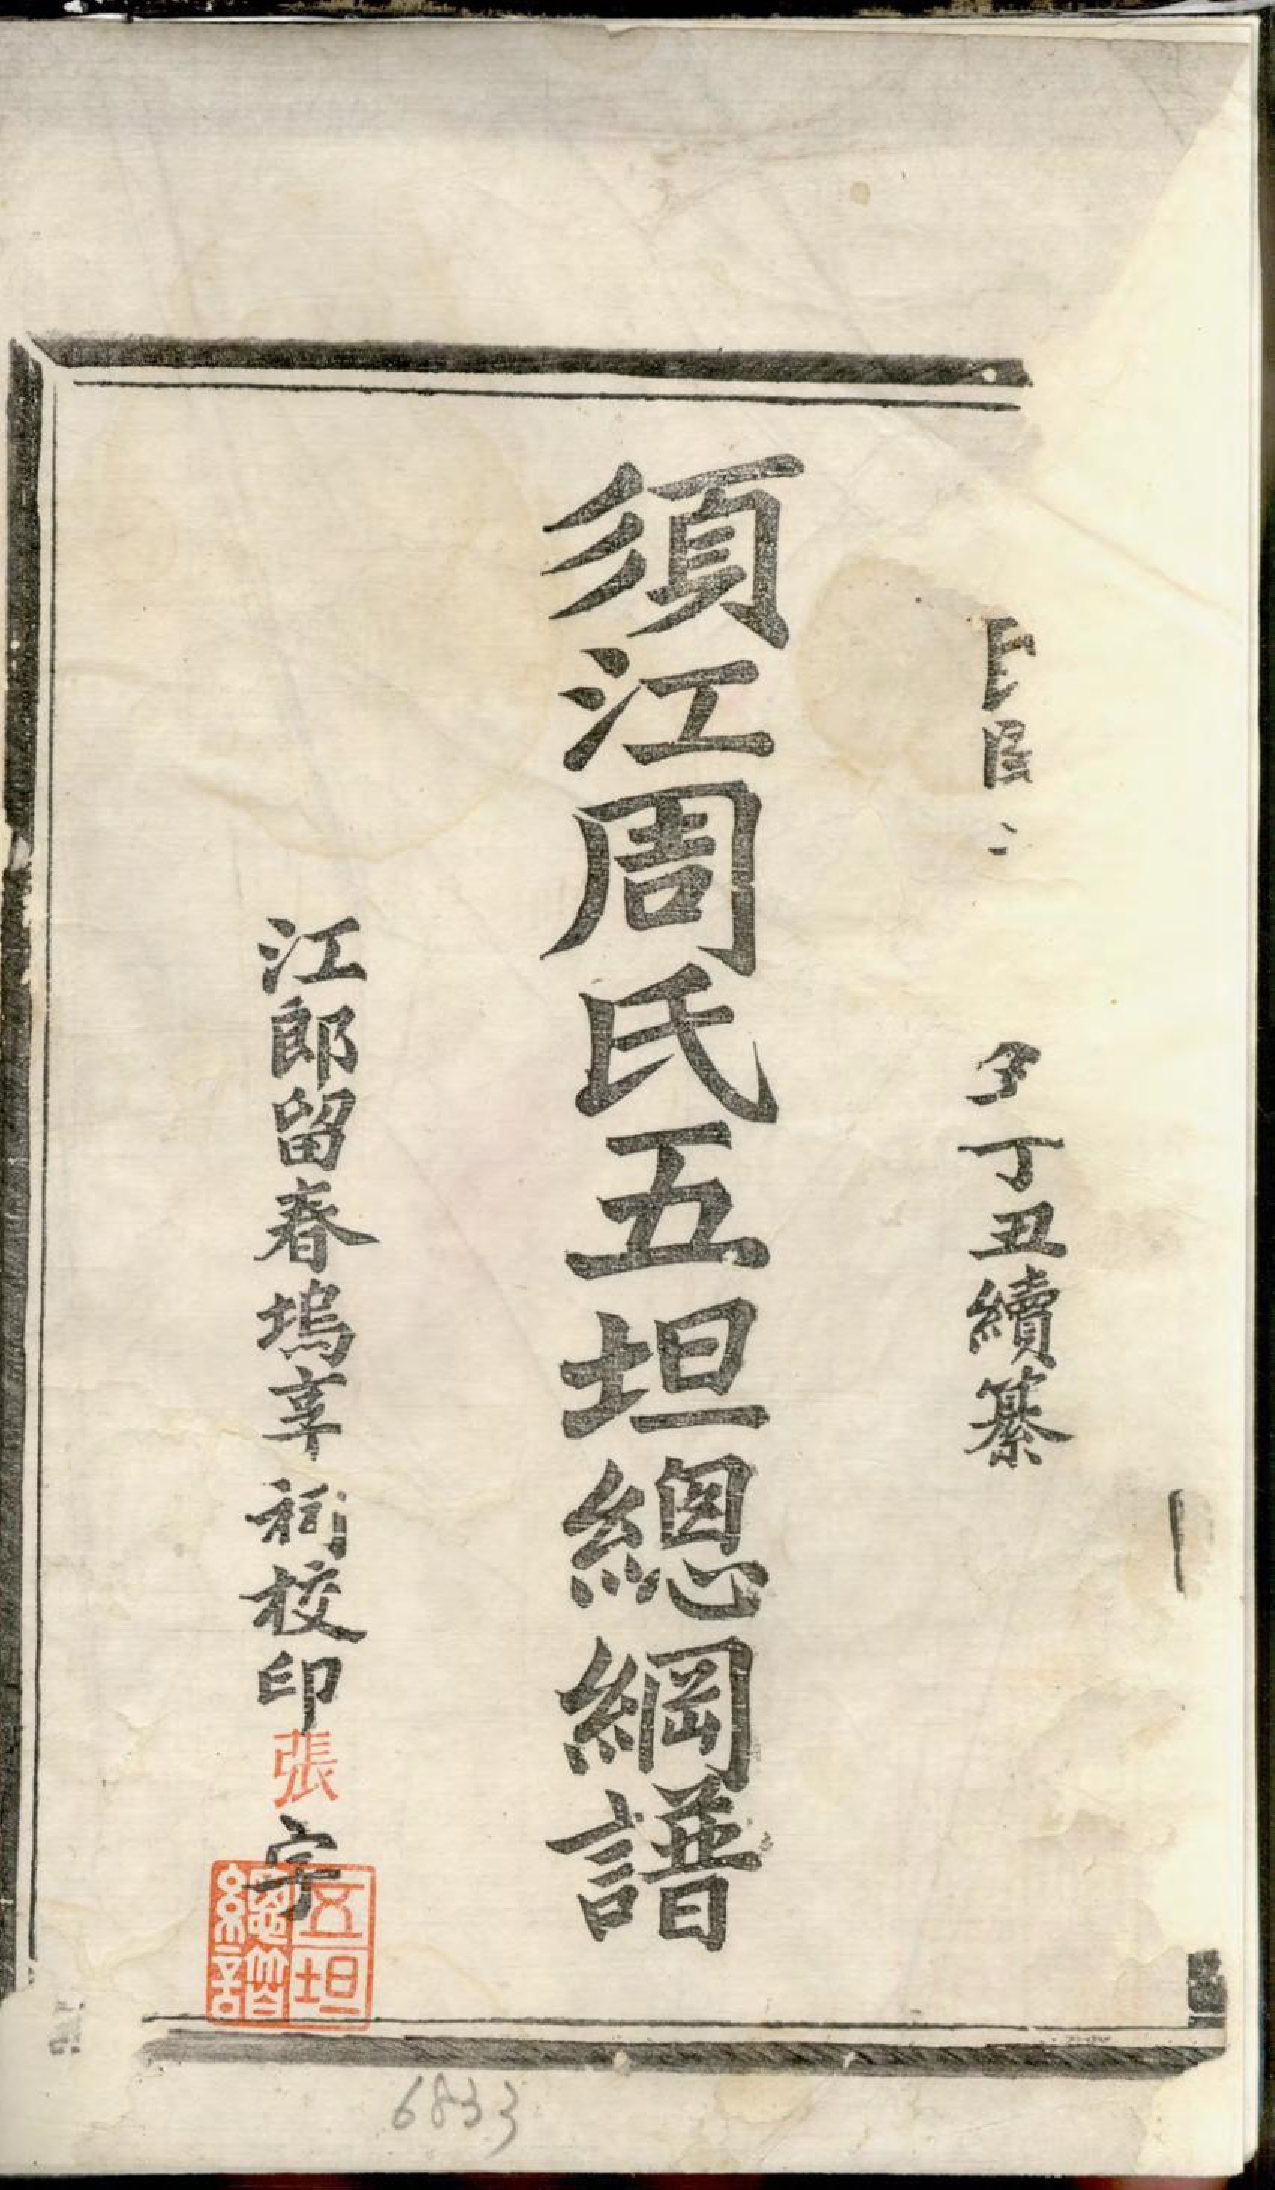 民國
丁丑續纂
須江周氏五坦總綱譜
江郎留春塢享祠校印張字
五坦
總譜
6833